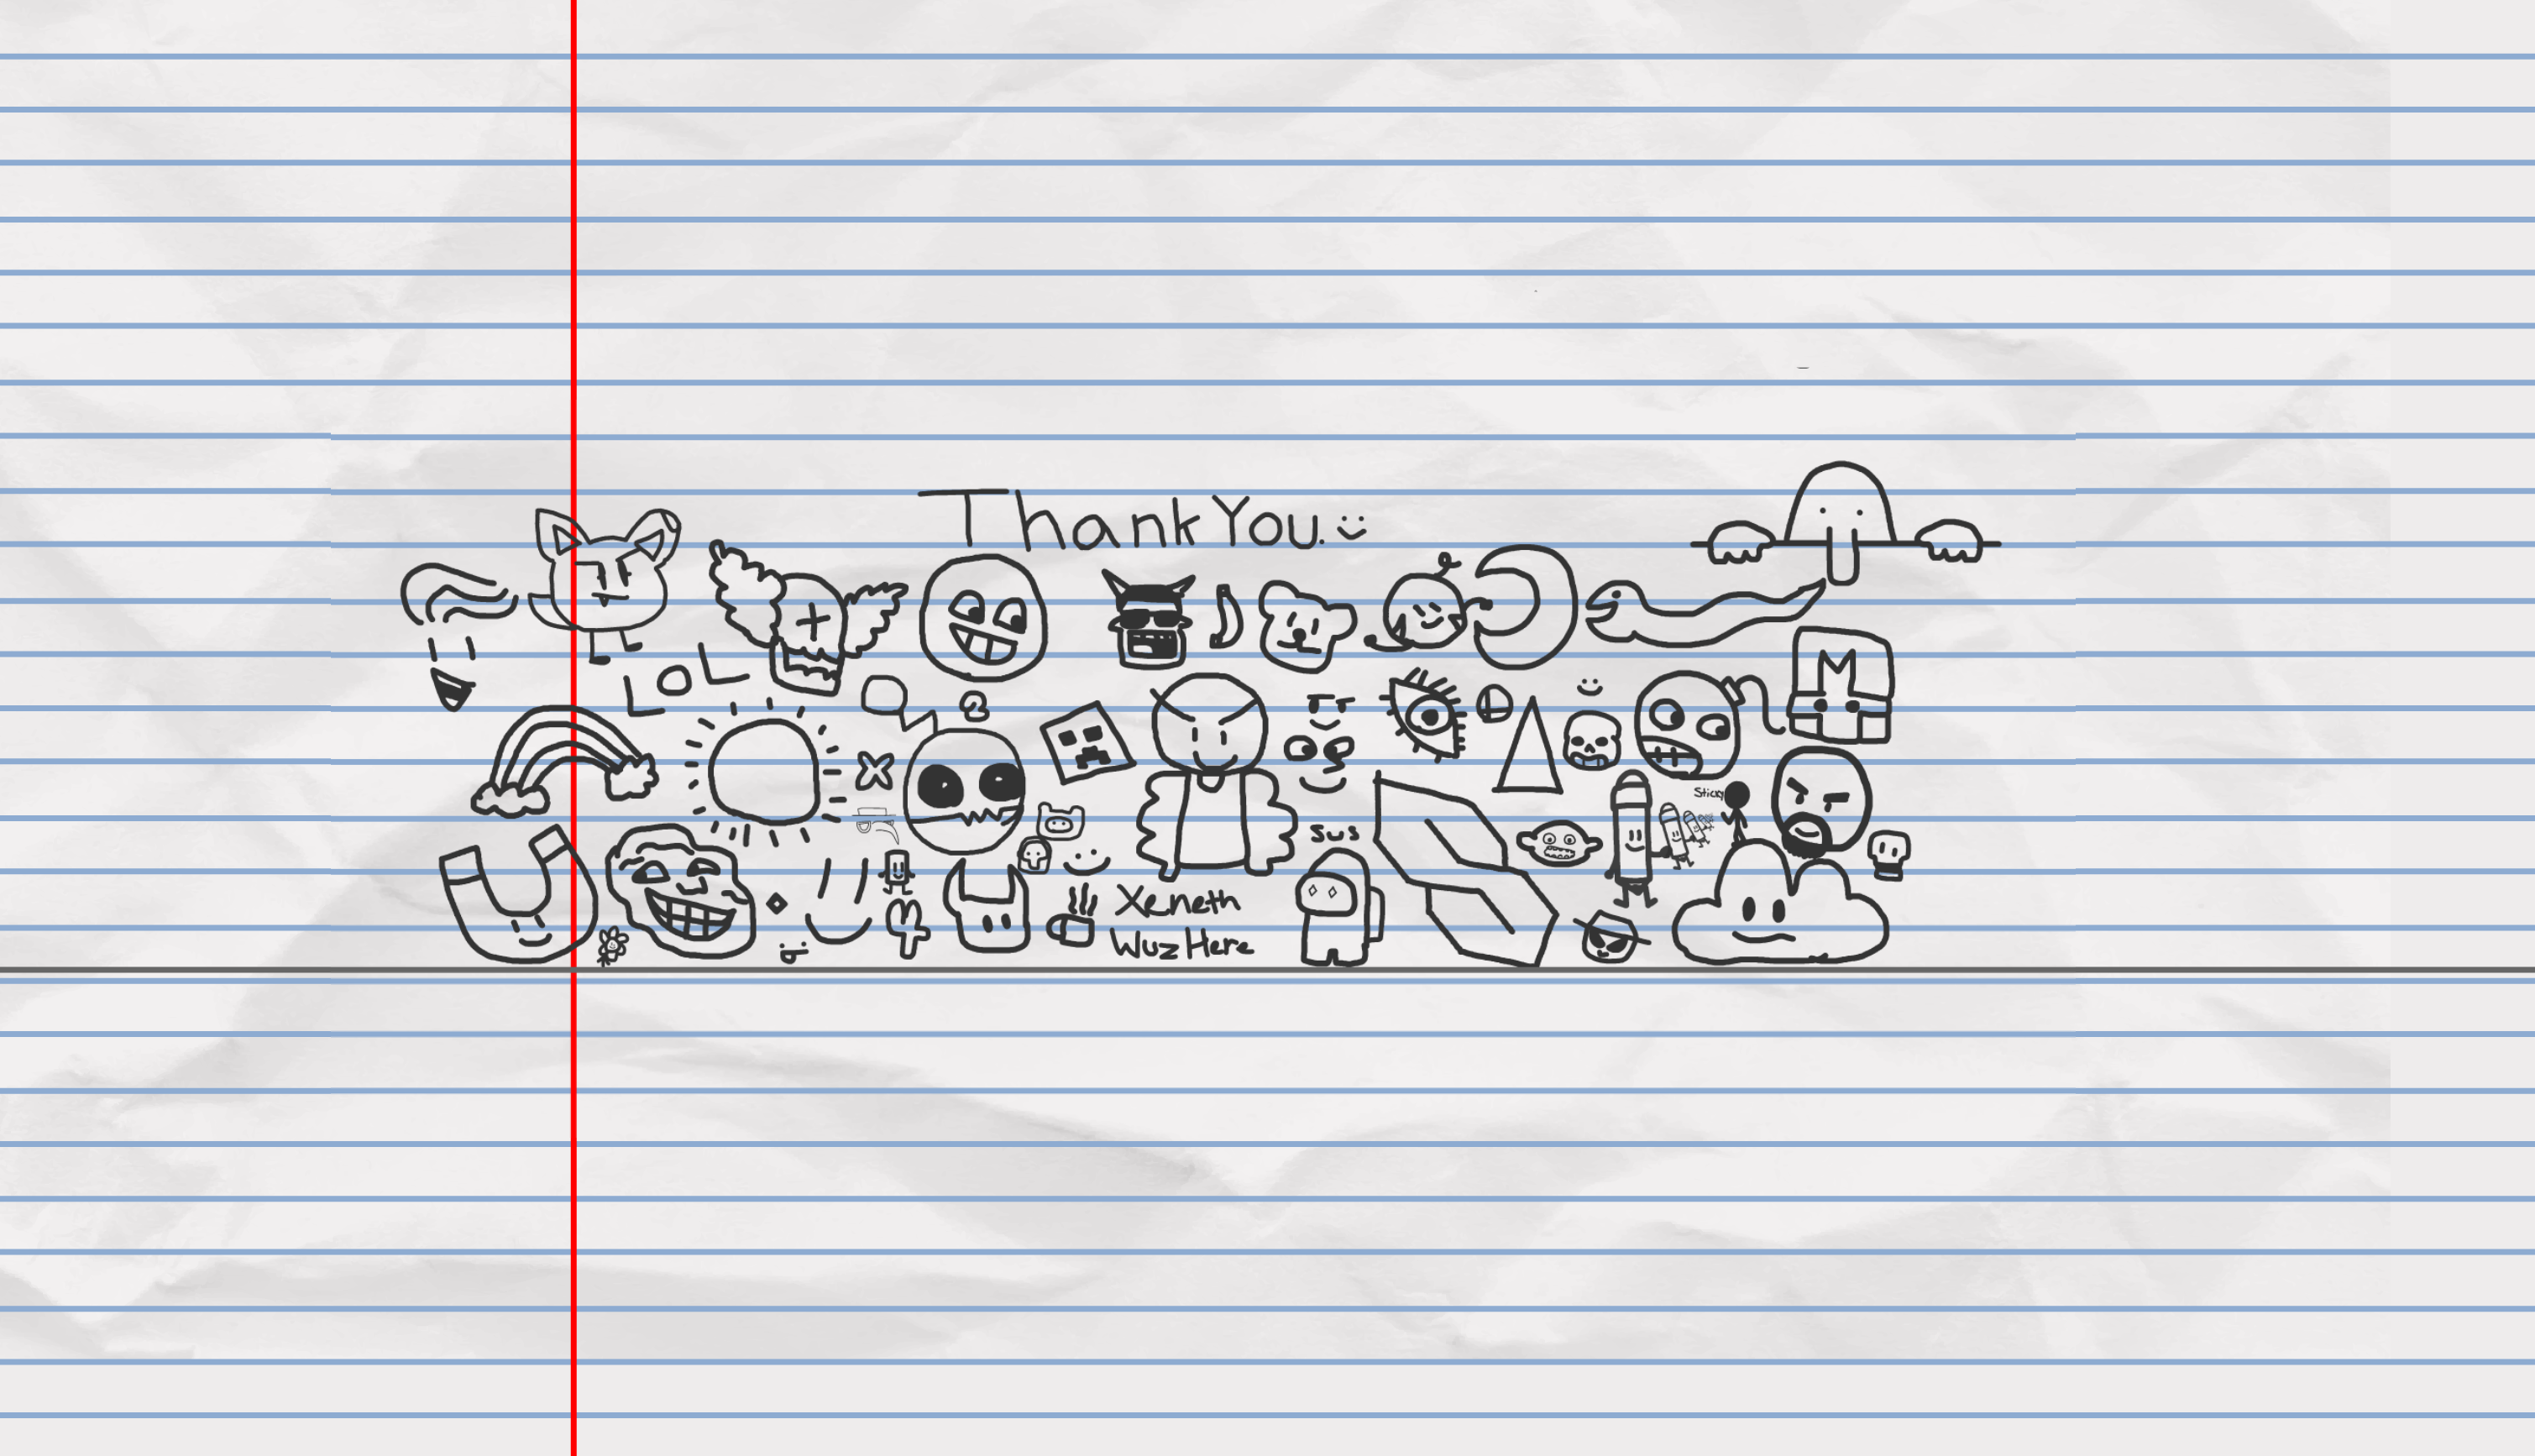 Thank You. :)
LOL
sus
Sticky
Xeneth
Wuz Here
M